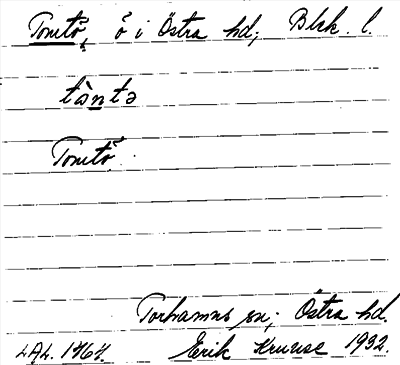 Tomtö, ö i Östra hd; Blek. l.
tòntə
Tomtö.
Torhamns sn; Östra hd.
LAL. 1767. Erik Kruuse 1932.